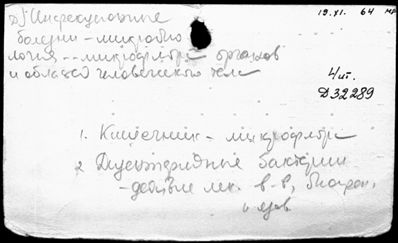 д) Инфекционные
19.XI. 64
болезни - микробио
логия -- микрофлора органов
и областей человеческого тела
4/ит.
Д32289
1. Кишечник - микрофлора
2 Дизентерийные бактерии
- действие лек. в-в,
и ядов